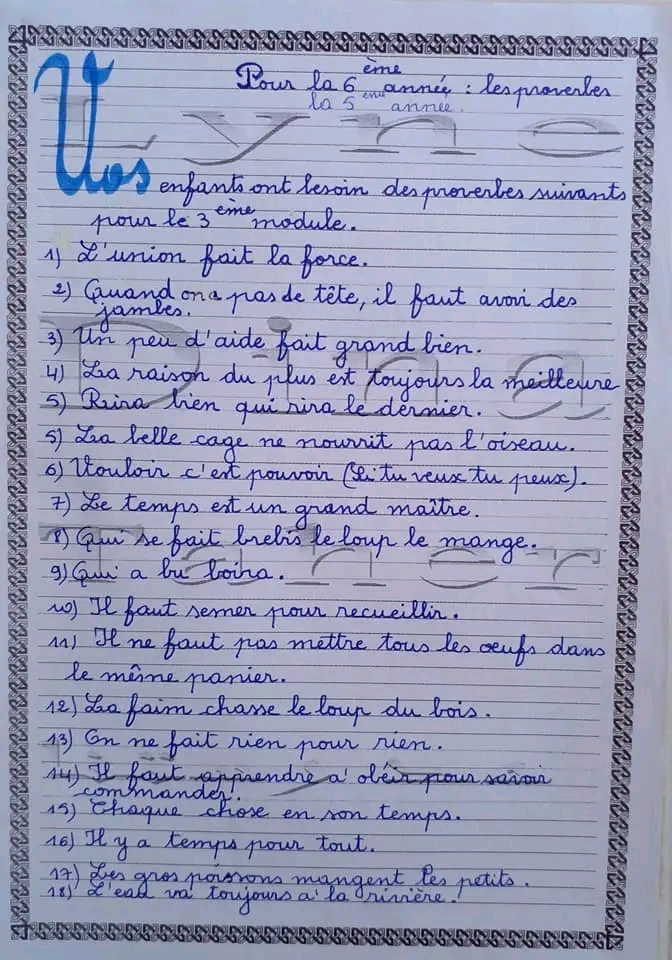 Pour la 6 ème année : les proverbes
la 5 ème année.
Lyno
Vos enfants ont besoin des proverbes suivants
pour le 3 ème module.
1) L'union fait la force.
2) Quand on a pas de tête, il faut avoir des
jambes.
3) Un peu d'aide fait grand bien.
Dina
4) La raison du plus est toujours la meilleure
5) Reira bien qui rira le dernier.
5) La belle cage ne nourrit pas l'oiseau.
6) Vouloir c'est pouvoir (Si tu veux tu peux).
7) Le temps est un grand maître.
8) Qui se fait brebis le loup le mange.
Taher
9) Qui a bu boira.
10) Il faut semer pour recueillir.
11) Il ne faut pas mettre tous les œufs dans
le même panier.
12) La faim chasse le loup du bois.
13) On ne fait rien pour rien.
14) Il faut apprendre a' obéir pour savoir
commander.
15) Chaque chose en son temps.
16) Il y a temps pour tout.
17) Les gros poissons mangent les petits.
18) L'eau va toujours a' la rivière.